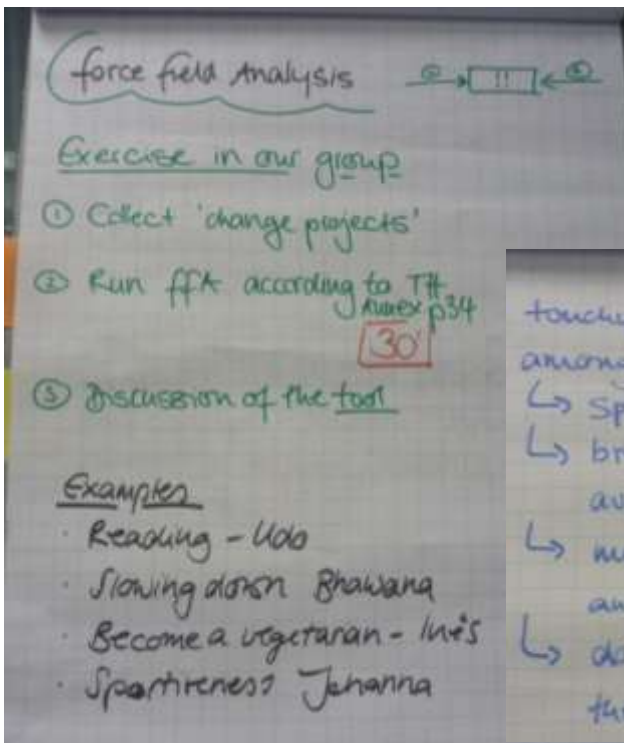 force field Analysis
!!
Exercise in our group
① Collect 'change projects'
② Run ffA according to TH
Annex p34
30'
③ Discussion of the tool
Examples
· Reading - Udo
· Slowing down Bhawana
· Become a vegetarian - Inés
· Sportiveness Johanna